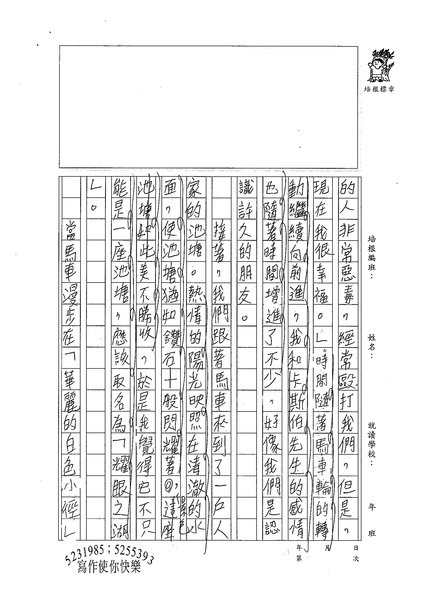 培根標章
培根編班：
姓名：
就讀學校：
年 班
年 月 日
第 次
的人非常惡毒，經常毆打我們，但是，
現在我很幸福。」時間隨著馬車輪的轉
動繼續向前進，我和卡斯伯先生的感情
也隨著時間增進了不少，好像我們是認
識許久的朋友。
接著，我們跟著馬車來到了一戶人
家的池塘。熱情的陽光映照在清澈的水
面，使池塘猶如鑽石十般閃耀著，這座
池塘如此美不勝收，於是我覺得它不只
能是一座池塘，應該取名為「耀眼之湖
」。
當馬車漫步在「華麗的白色小徑」
5231985；5255393
寫作使你快樂